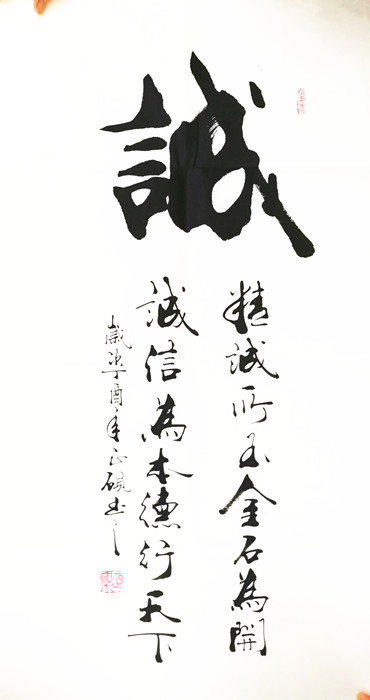 誠
精誠所至金石為開
誠信為本德行天下
歲次丁酉年正硯書之